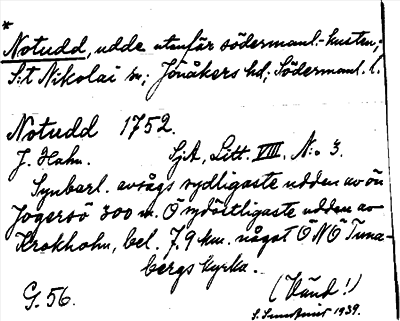 *
Notudd, udde utanför södermanl.-kusten;
S:t Nikolai sn; Jönåkers hd; Södermanl. l.
Notudd 1752.
J. Hahn. SjA, Litt. VIII, N:o 3.
Synbarl. avsågs sydligaste udden av ön
Jogersö 300 m. Ö sydöstligaste udden av
Krokholm, bel. 7,9 km. något ÖNÖ Tuna-
bergs kyrka.
(Vänd!)
G. 56.
1939.